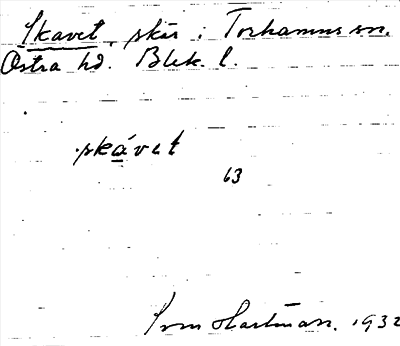 Skavet, skär i Torhamns sn.
Östra hd. Blek. l.
skávet
63
Hartman. 1932